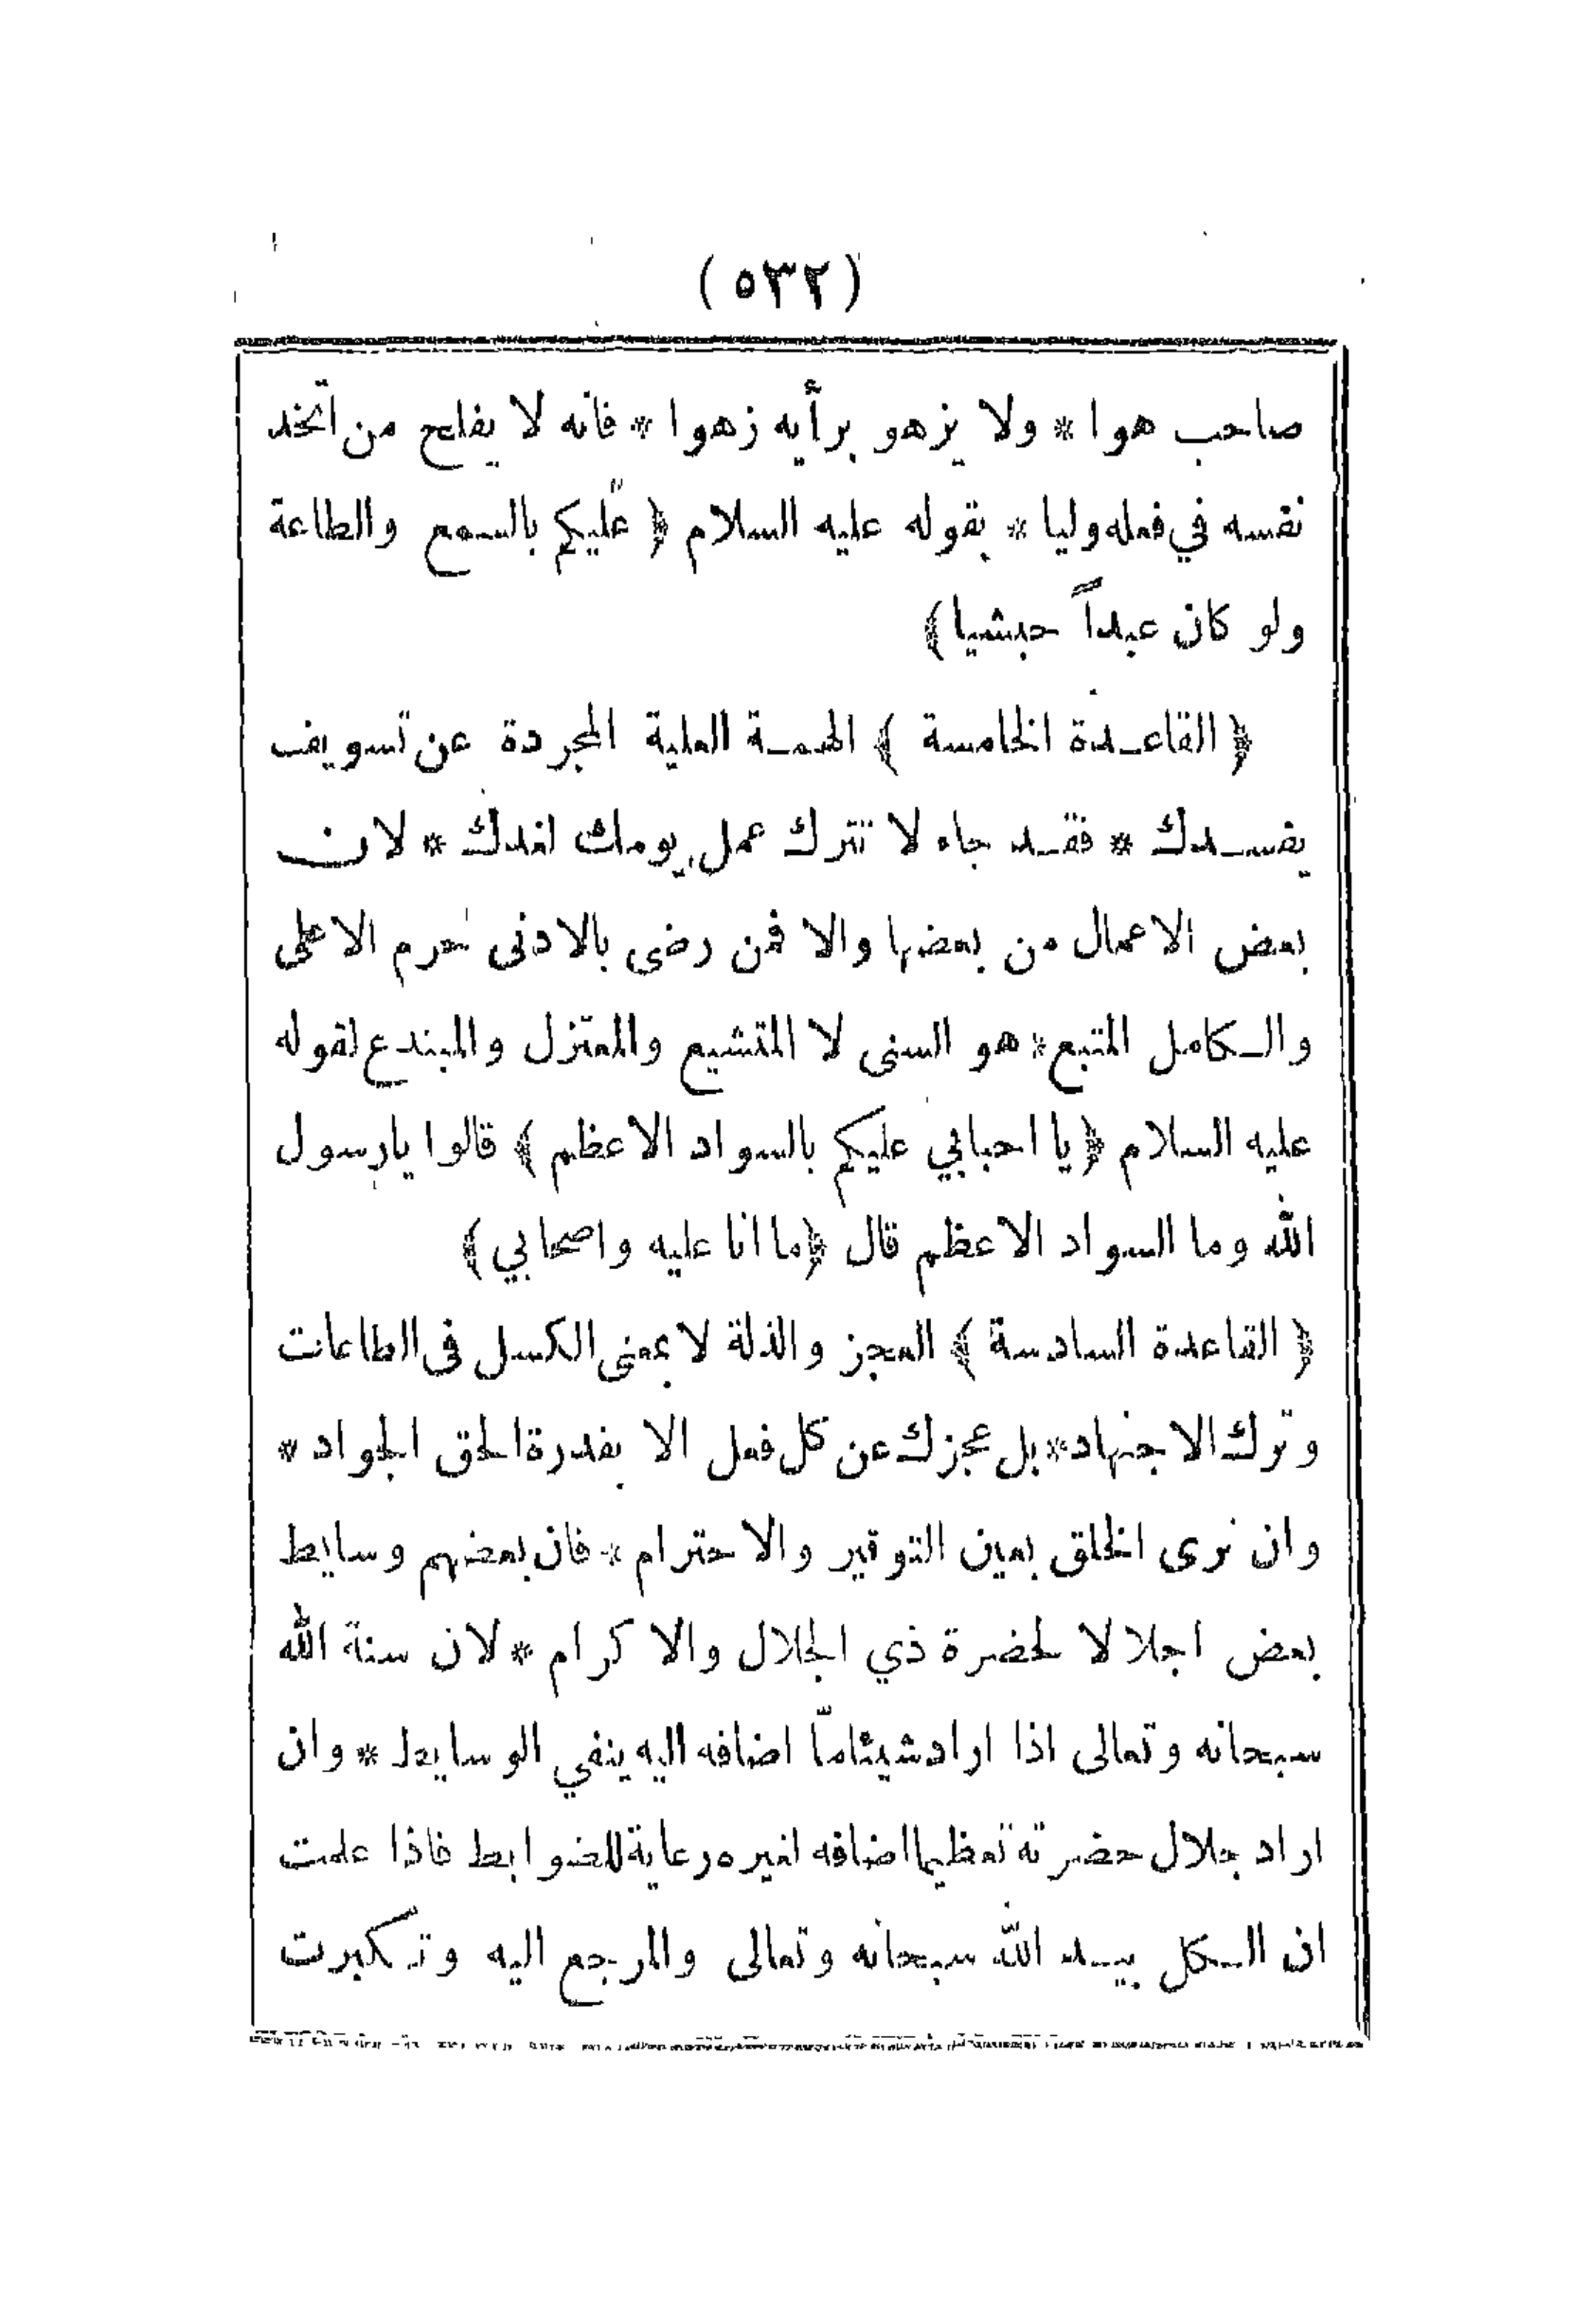 (٥٣٢)
صاحب هوا * ولا يزهو برأيه زهوا * فانه لا يفلح من اتخذ
نفسه في فعله وليا * بقوله عليه السلام ﴿ عليكم بالسمع والطاعة
ولو كان عبداً حبشيا ﴾
﴿ القاعدة الخامسة ﴾ الهمة العلية المجردة عن تسويف
يفسدك * فقد جاء لا تترك عمل يومك لغدك * لان
بعض الاعمال من بعضها والا فمن رضى بالادنى حرم الاعلى
والكامل المتبع * هو السنى لا المتشيع والمعتزل والمبتدع لقوله
عليه السلام ﴿ يا احبابي عليكم بالسواد الاعظم ﴾ قالوا يارسول
الله وما السواد الاعظم قال ﴿ ما انا عليه واصحابي ﴾
﴿ القاعدة السادسة ﴾ العجز والذلة لا بمعنى الكسل فى الطاعات
وترك الاجتهاد * بل عجزك عن كل فعل الا بقدرة الحق الجواد *
وان نرى الخلق بعين التوقير والاحترام * فان بعضهم وسايط
بعض اجلالا لحضرة ذي الجلال والاكرام * لان سنة الله
سبحانه وتعالى اذا اراد شيئاً مّا اضافه اليه ينفي الوسايط * وان
اراد جلال حضرته تعظيما اضافه لغيره رعاية للضوابط فاذا علمت
ان الكل بيد الله سبحانه وتعالى والمرجع اليه وتكبرت